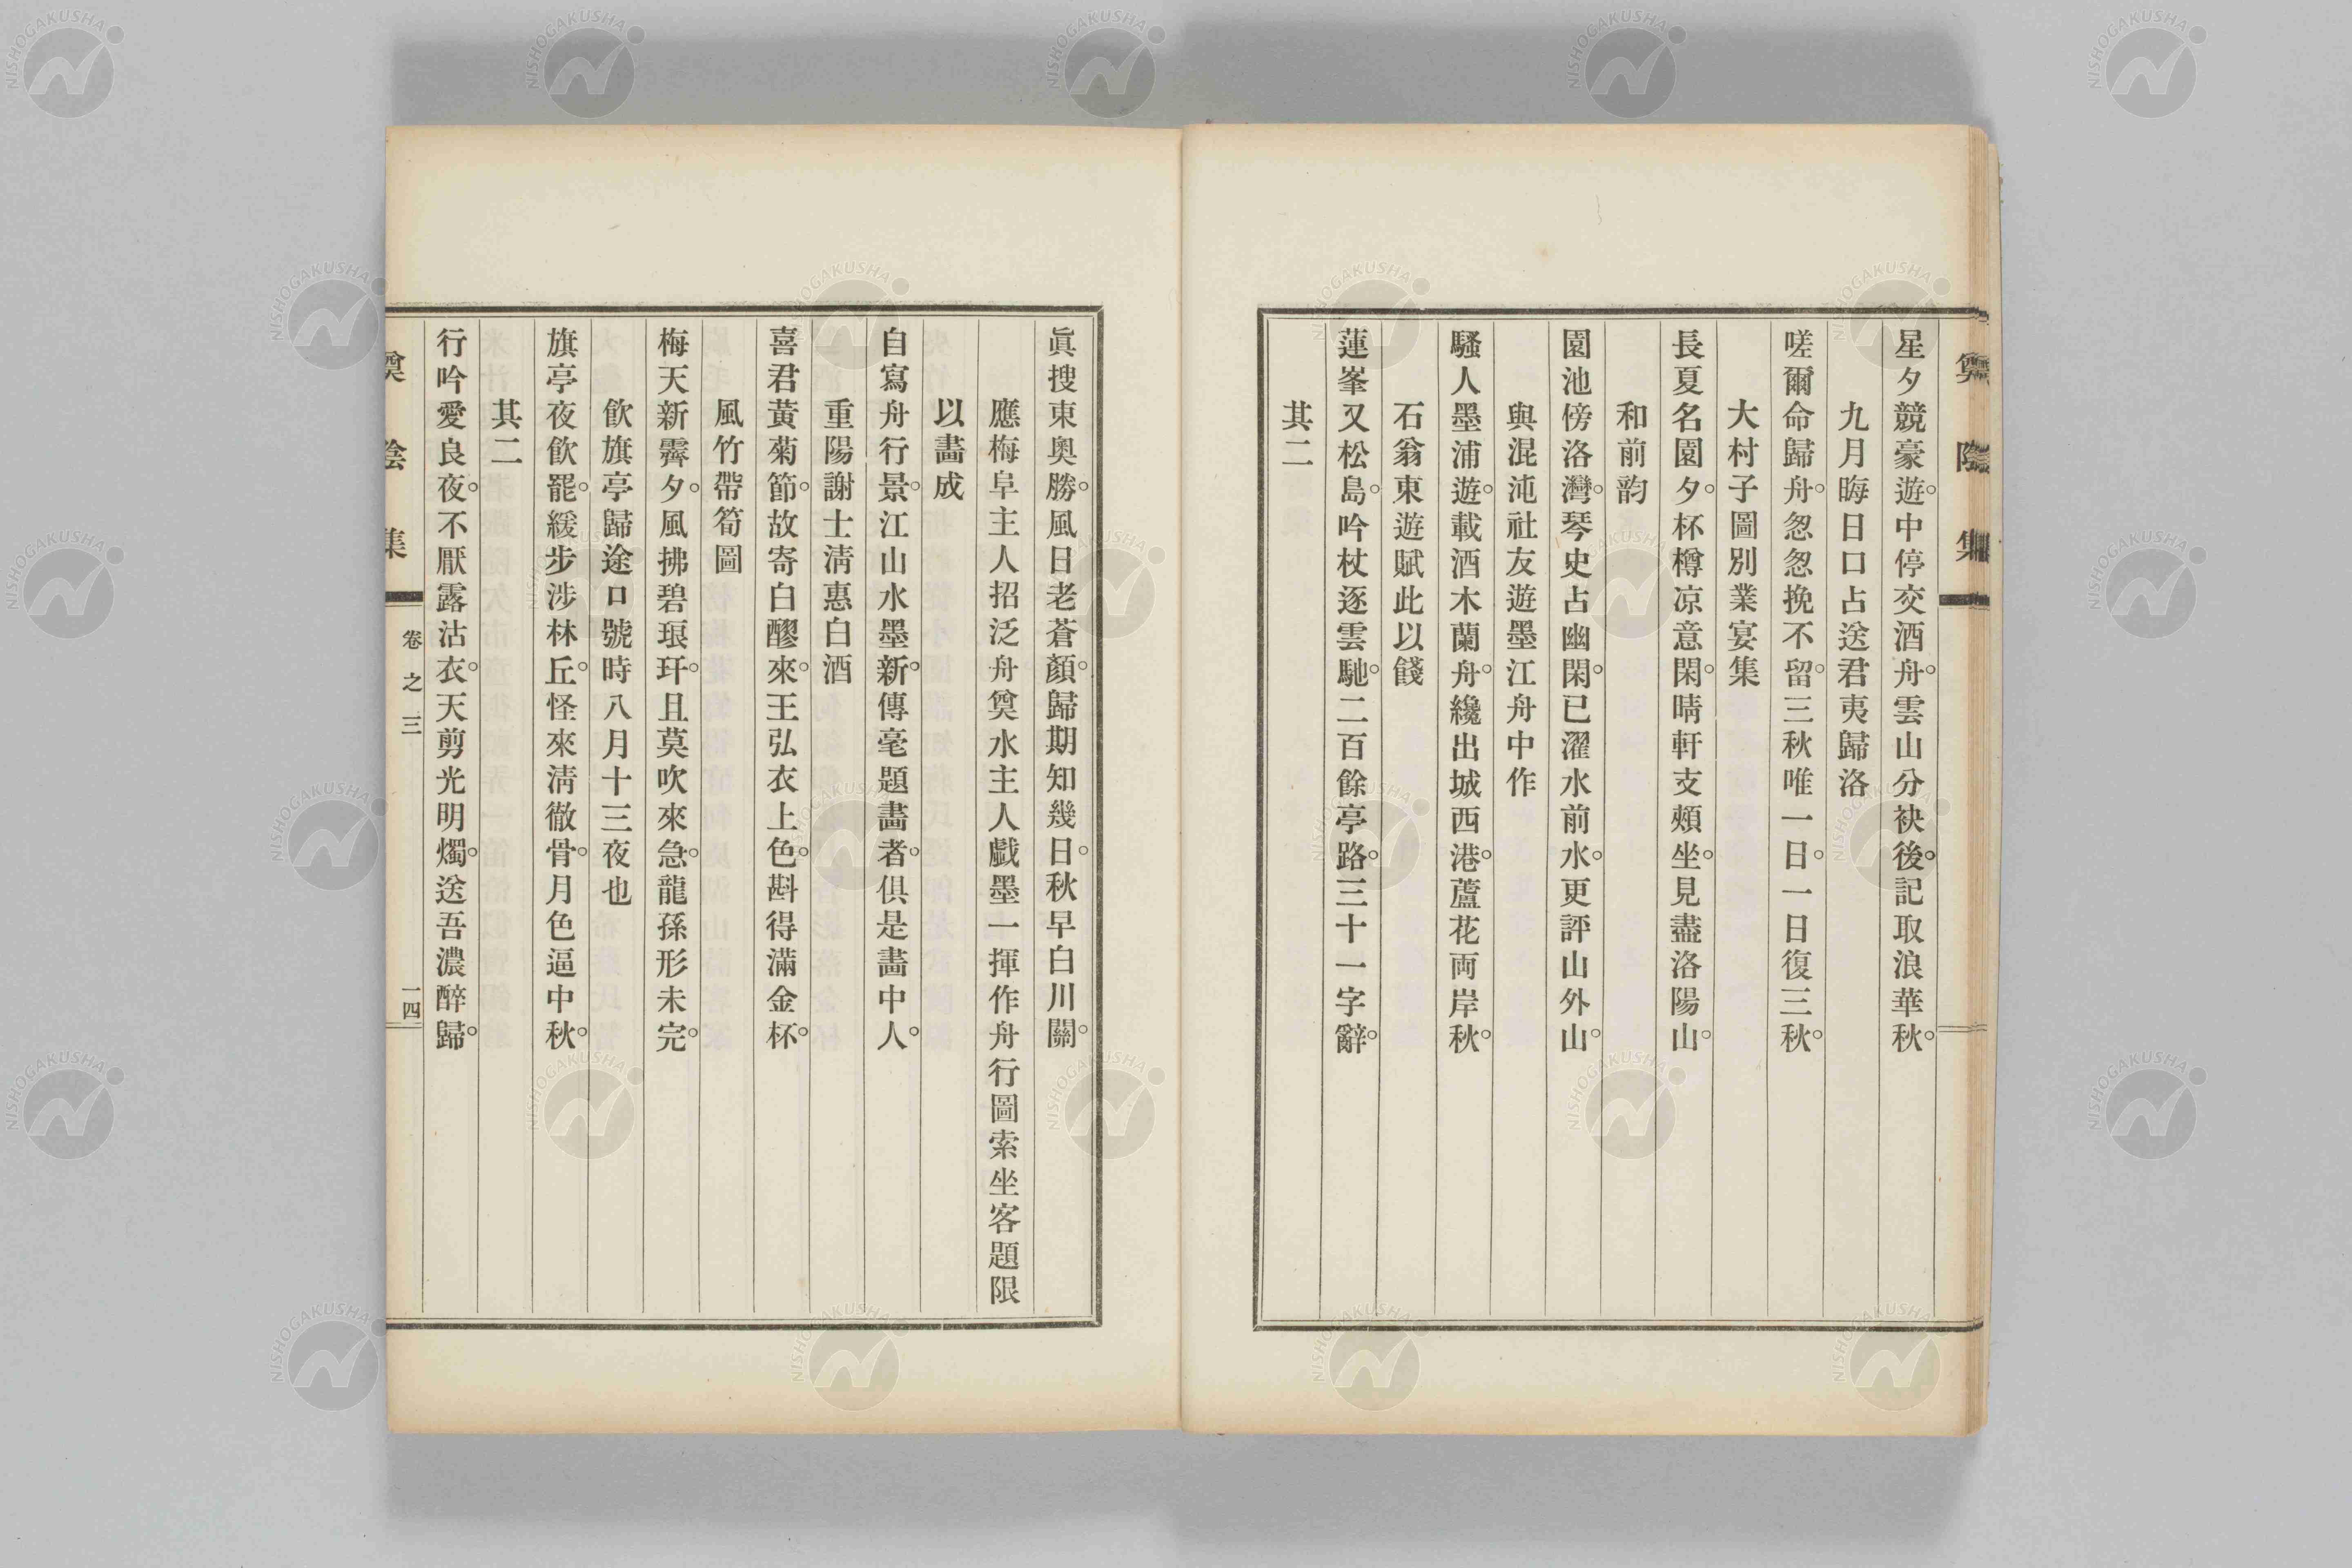 奠陰集
星夕競豪遊。中停交酒舟。雲山分袂後。記取浪華秋。
九月晦日口占送君夷歸洛
嗟爾命歸舟。怱怱挽不留。三秋唯一日。一日復三秋。
大村子圖別業宴集
長夏名園夕。杯樽凉意閑。晴軒支頰坐。見盡洛陽山。
和前韵
園池傍洛灣。琴史占幽閑。已濯水前水。更評山外山。
與混沌社友遊墨江舟中作
騷人墨浦遊。載酒木蘭舟。纔出城西港。蘆花両岸秋。
石翁東遊賦此以餞
蓮峯又松島。吟杖逐雲馳。二百餘亭路。三十一字辭。
其二
眞搜東奧勝。風日老蒼顏。歸期知幾日。秋早白川關。
應梅阜主人招泛舟奠水主人戲墨一揮作舟行圖索坐客題限
以畵成
自寫舟行景。江山水墨新。傳毫題畵者。俱是畵中人。
重陽謝士淸惠白酒
喜君黃菊節。故寄白醪來。王弘衣上色。斟得滿金杯。
風竹帶筍圖
梅天新霽夕。風拂碧琅玕。且莫吹來急。龍孫形未完。
飮旗亭歸途口號時八月十三夜也
旗亭夜飮罷。緩步涉林丘。怪來淸徹骨。月色逼中秋。
其二
行吟愛良夜。不厭露沾衣。天剪光明燭。送吾濃醉歸。
奠陰集 卷之三 一四
NISHOGAKUSHA